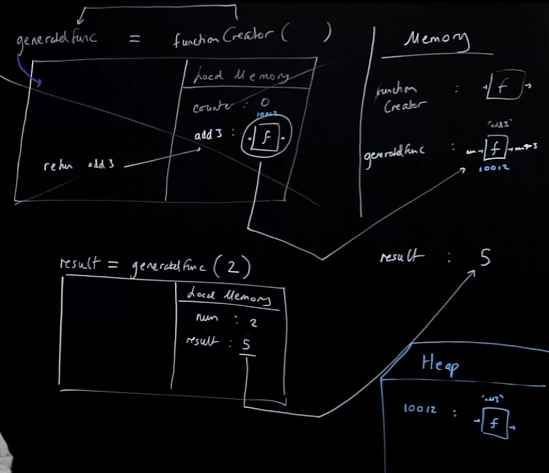 generatedfunc = functionCreator ( )
Local Memory
counter : 0
10012
add3 : f
return add3
Memory
function Creator : f
"add3"
generatedfunc : num f num+3
10012
result = generatedfunc ( 2 )
Local Memory
num : 2
result : 5
result : 5
Heap
"add3"
10012 : f